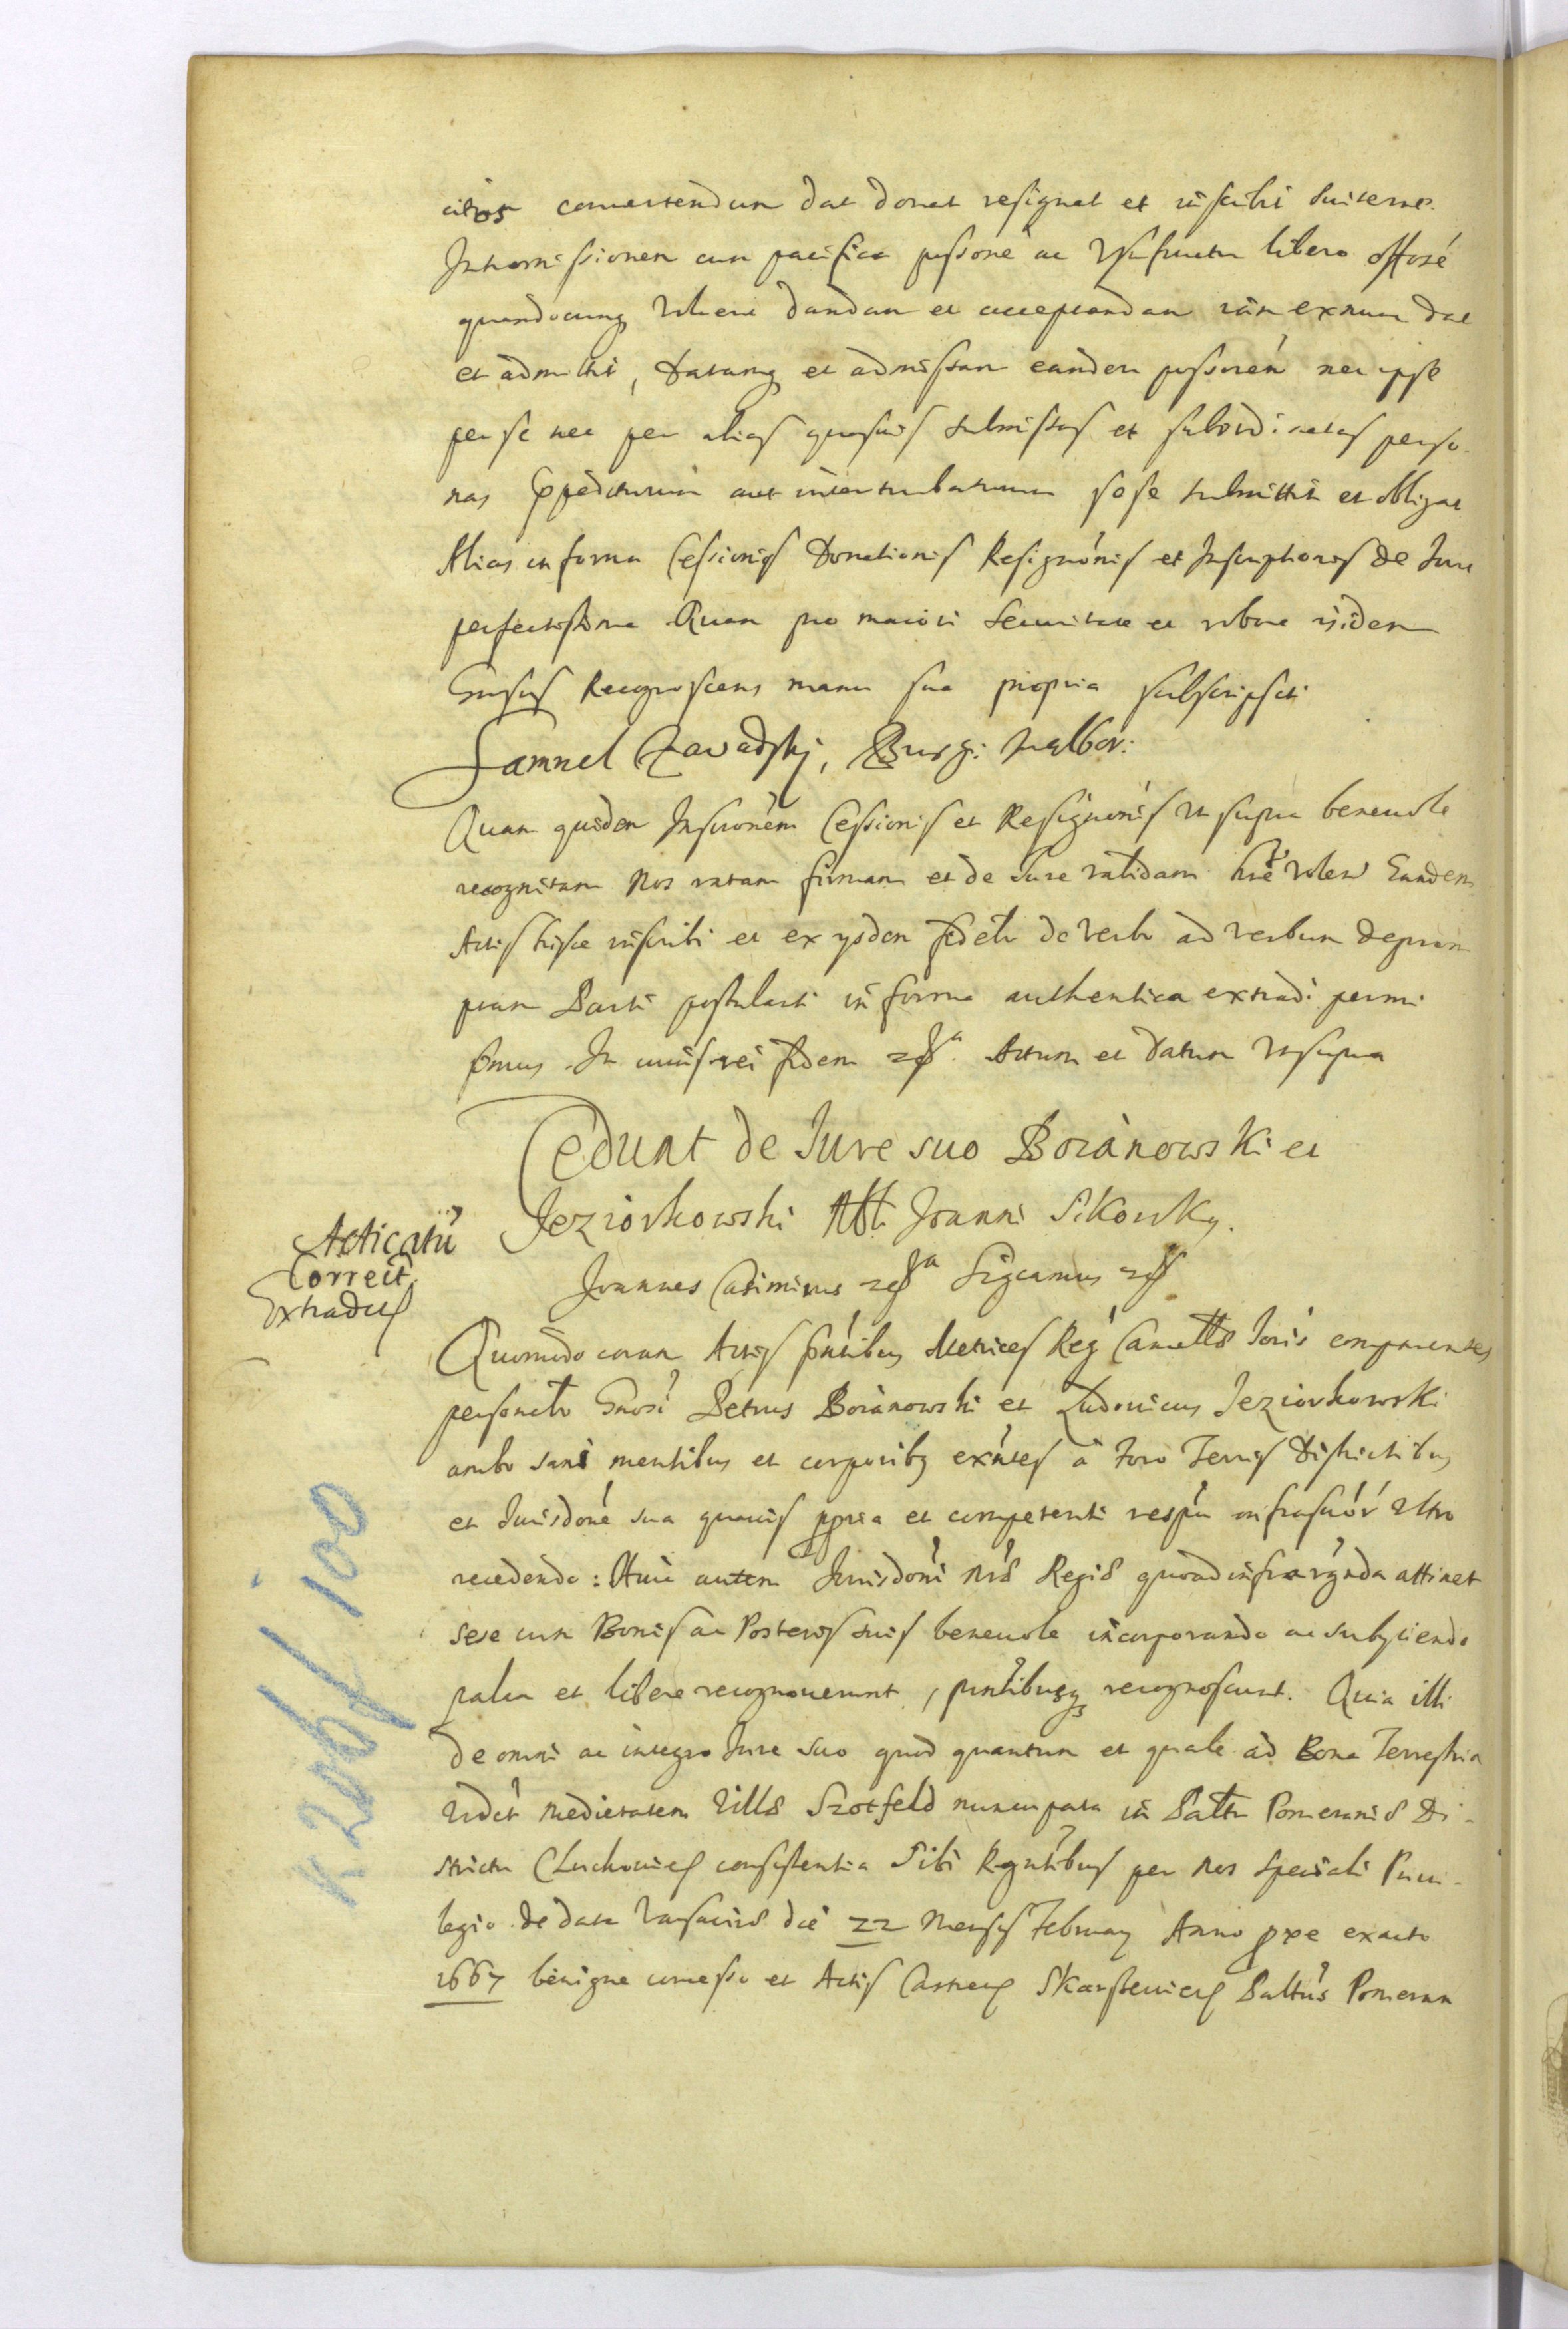 citior convertendum dat donat resignat et inscribi suiterne.
Intromissionem cum pacifica possone ac Usufructu libero offosé
quandocunq Volueri dandam et acceptandam iam exnunc dat
et admittit, Datamq et admissam eandem possonem nec ipse
per se nec per alias quasuis submissas et subordinatas perso
nas Impediturum aut interturbaturum sese submittit et obligat
Alias in forma Cessionis Donationis Resignonis et Inscriptionis de Jure
perfectissima Quam pro maiori securitate et robore ijdem
Gnosus Recognoscens manu sua propria subscripsit
Samuel Zawadzkj, Burg: Malbor:
Quam quidem Inscronem Cessionis et Resignonis Ut supra beneuole
recognitam Nos ratam firmam et de Iure validam hre volen Eandem
Actis hisce inscribi et ex ysdem fidelr de Verbo ad Verbum deprom
ptam Parti postulanti in forma authentica extradi permi
simus. In cuius rei fidem etc. Actum et Datum Ut supra
Cedunt de Iure suo Boianowski et
Jeziorkowski Nbli Joanni Sikorsky.
Acticatu
Correct
Extradit
Joannes Casimirus etc. Sigcamus etc
Quomodo coram Actis pntibus Metrices Reg Cancella Ioris comparentes
personalr Gnosi Petrus Boianowski et Ludovicus Jeziorkowski
ambo sani mentibus et corporibq exntes a Foro Terris Districtibus
et Iurisdone sua quauis ppria et competenti respu infrascror Ultro
recedendo: Huic autem Jurisdoni nrae Regiae quoad infrargnda attinet
sese cum Bonis ac Posteris suis beneuole incorporando ac subyciendo
palam et libere recognouerunt, pntibusq recognoscunt. Quia illi
de omni ac integro Jure suo quod quantum et quale ad Bona Terrestria
Vdct medietatem Villae Szotfeld nuncupata in Paltu Pomeraniae Di-
strictu Cluchouien consistentia Sibi Rgntibus per Nos speciali Priui-
legio de data Varsauiae die 22 Mensis February Anno pxe exacto
1667 benigne concesso et Actis Castren Skarsteuien Paltus Pomeran
K 206 f 100